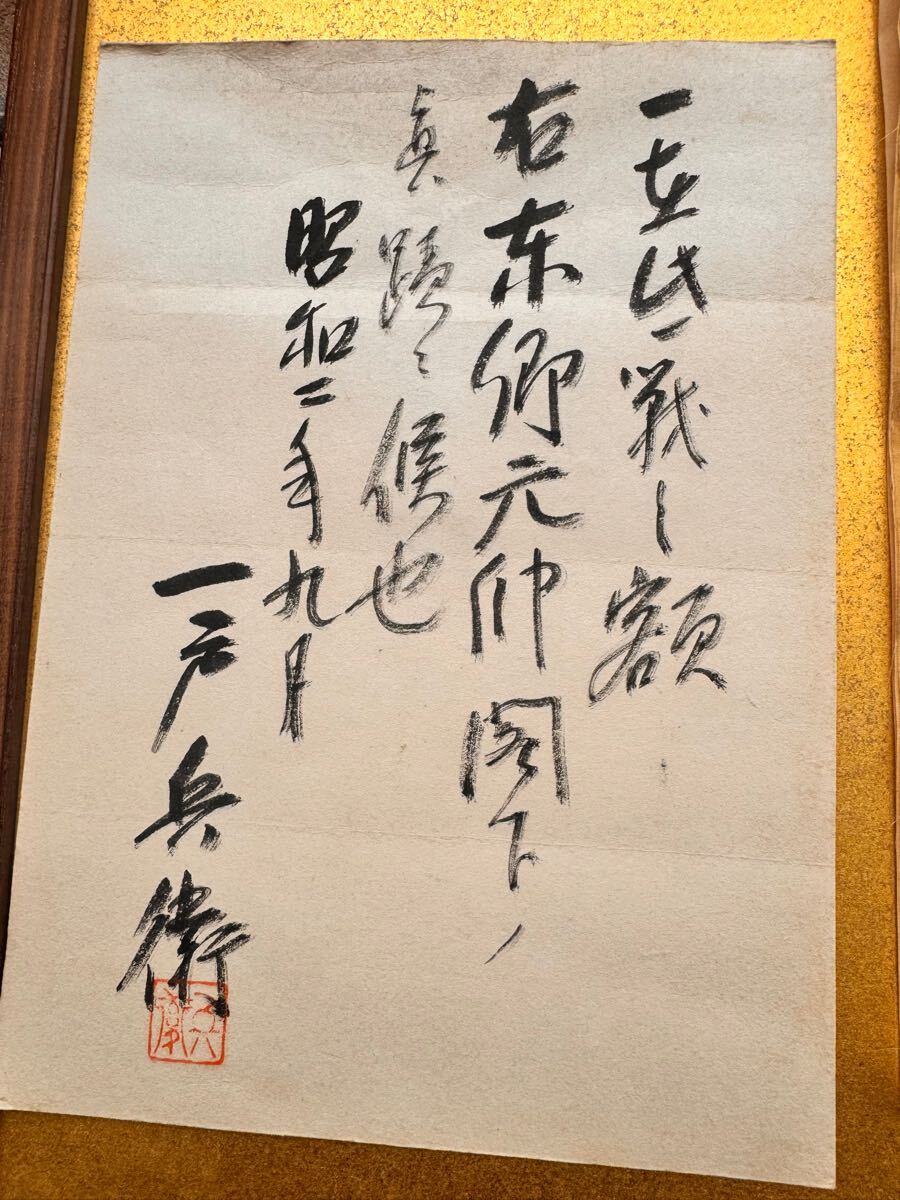 一在此一戦之額
右東郷元帥閣下ノ
真蹟ニ候也
昭和二年九月
一戸兵衛
兵衛